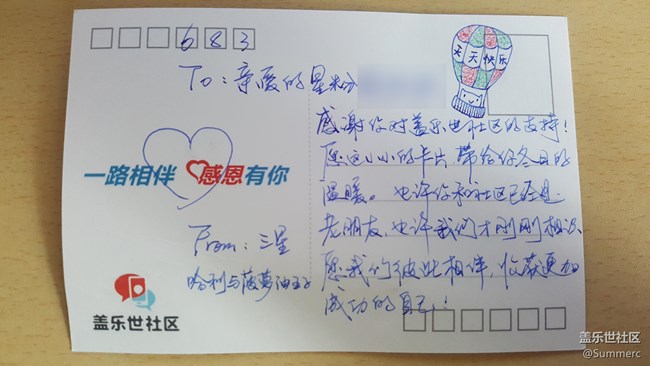 683
天天快乐
To: 亲爱的星粉
感谢你对盖乐世社区的支持!
愿这小小的卡片带给你冬日的
温暖。也许你和社区已经是
老朋友,也许我们才刚刚相识
愿我们彼此相伴,收获更加
成功的自己!
一路相伴 感恩有你
From: 三星
哈利与菠萝油王子
盖乐世社区
盖乐世社区
@Summerc